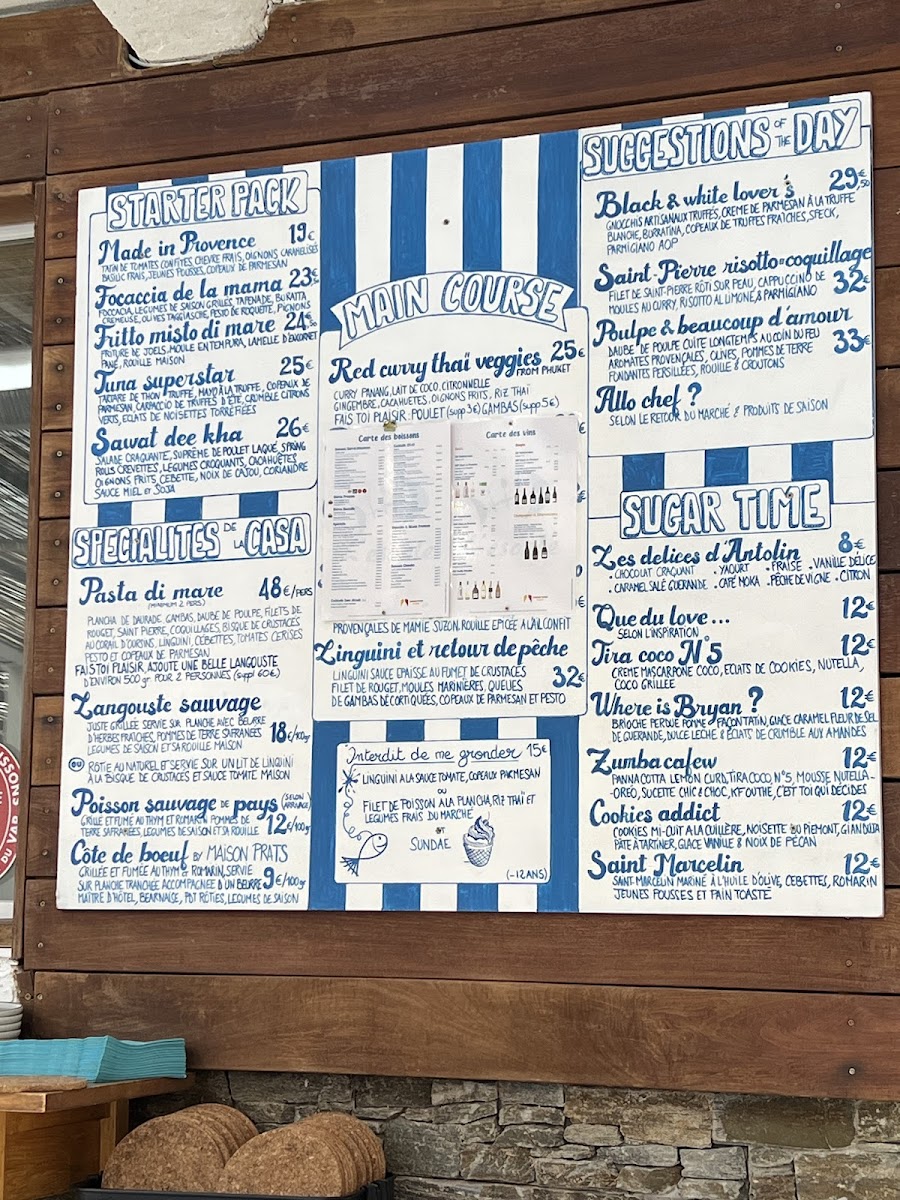 STARTER PACK
Made in Provence 19€
TATIN DE TOMATES CONFITES, CHEVRE FRAIS, OIGNONS CARAMELISES
BASILIC FRAIS, JEUNES POUSSES, COPEAUX DE PARMESAN
Focaccia de la mama 23,50
FOCACCIA, LEGUMES DE SAISON GRILLES, TAPENADE, BURATTA
CREMEUSE, OLIVES TAGGIASCHE, PESTO DE ROQUETTE, PIGNONS
Fritto misto di mare 24€,50
FRITURE DE JOELS, MOULE EN TEMPURA, LAMELLE D'ENCORNET
PANE, ROUILLE MAISON
Tuna superstar 25€
TARTARE DE THON TRUFFE, MAYO A LA TRUFFE, COPEAUX DE
PARMESAN, CARPACCIO DE TRUFFES D'ETE, CRUMBLE CITRONS
VERTS, ECLATS DE NOISETTES TORREFIEES
Sawat dee kha 26€
SALADE CRAQUANTE, SUPRÊME DE POULET LAQUE, SPRING
ROLLS CREVETTES, LEGUMES CROQUANTS, CACAHUÈTES
OIGNONS FRITS, CEBETTE, NOIX DE CAJOU, CORIANDRE
SAUCE MIEL ET SOJA
SPECIALITES DE LA CASA
Pasta di mare 48€/PERS
(MINIMUM 2 PERS)
PLANCHA DE DAURADE, GAMBAS, DAUBE DE POULPE, FILETS DE
ROUGET, SAINT PIERRE, COQUILLAGES, BISQUE DE CRUSTACES
AU CORAIL D'OURSINS, LINGUINI, CEBETTES, TOMATES CERISES
PESTO ET COPEAUX DE PARMESAN
FAIS TOI PLAISIR, AJOUTE UNE BELLE LANGOUSTE
D'ENVIRON 500 gr. POUR 2 PERSONNES (suppl 60€)
Langouste sauvage
JUSTE GRILLEE SERVIE SUR PLANCHE AVEC BEURRE
D'HERBES FRAICHES, POMMES DE TERRE SAFRANEES 18€/100gr
LEGUMES DE SAISON ET SA ROUILLE MAISON
OU RÔTIE AU NATUREL ET SERVIE SUR UN LIT DE LINGUINI
A LA BISQUE DE CRUSTACES ET SAUCE TOMATE MAISON
Poisson sauvage DE pays (SELON ARRIVAGE)
GRILLE ET FUME AU THYM ET ROMARIN, POMMES DE
TERRE SAFRANEES, LEGUMES DE SAISON ET SA ROUILLE 12€/100gr
Côte de boeuf BY MAISON PRATS
GRILLÉE ET FUMÉE AU THYM ET ROMARIN, SERVIE
SUR PLANCHE TRANCHÉE ACCOMPAGNEE D'UN BEURRE 9€/100gr
MAITRE D'HÔTEL, BEARNAISE, PDT RÔTIES, LEGUMES DE SAISON
MAIN COURSE
Red curry thaï veggies 25€
FROM PHUKET
CURRY PANANG, LAIT DE COCO, CITRONNELLE
GINGEMBRE, CACAHUETES, OIGNONS FRITS, RIZ THAÏ
FAIS TOI PLAISIR: POULET (supp 3€) GAMBAS (supp 5€)
Carte des boissons
Carte des vins
PROVENÇALES DE MAMIE SUZON, ROUILLE EPICEE A L'AIL CONFIT
Linguini et retour de pêche
LINGUINI SAUCE EPAISSE AU FUMET DE CRUSTACES
FILET DE ROUGET, MOULES MARINIÈRES, QUEUES 32€
DE GAMBAS DÉCORTIQUÉES, COPEAUX DE PARMESAN ET PESTO
Interdit de me gronder 15€
LINGUINI A LA SAUCE TOMATE, COPEAUX PARMESAN
OU
FILET DE POISSON A LA PLANCHA, RIZ THAÏ ET
LEGUMES FRAIS DU MARCHE
ET
SUNDAE
(-12 ANS)
SUGGESTIONS OF THE DAY
Black & white lover's 29€,50
GNOCCHIS ARTISANAUX TRUFFES, CREME DE PARMESAN À LA TRUFFE
BLANCHE, BURRATINA, COPEAUX DE TRUFFES FRAÎCHES, SPECK,
PARMIGIANO AOP
Saint-Pierre risotto & coquillage
FILET DE SAINT-PIERRE RÔTI SUR PEAU, CAPPUCCINO DE 32€
MOULES AU CURRY, RISOTTO AL LIMONE, & PARMIGIANO
Poulpe & beaucoup d'amour
DAUBE DE POULPE CUITE LONGTEMPS AU COIN DU FEU 33€
AROMATES PROVENÇALES, OLIVES, POMMES DE TERRE
FONDANTES PERSILLÉES, ROUILLE & CROUTONS
Allo chef ?
SELON LE RETOUR DU MARCHÉ & PRODUITS DE SAISON
SUGAR TIME
Les delices d'Antolin 8€
. CHOCOLAT CRAQUANT . YAOURT . FRAISE . VANILLE DÉLICE
. CARAMEL SALÉ GUERANDE . CAFÉ MOKA . PÊCHE DE VIGNE . CITRON
Que du love... 12€
SELON L'INSPIRATION
Tira coco N°5 12€
CREME MASCARPONE COCO, ECLATS DE COOKIES, NUTELLA,
COCO GRILLEE
Where is Bryan ? 12€
BRIOCHE PERDUE POMME FAÇON TATIN, GLACE CARAMEL FLEUR DE SEL
DE GUERANDE, DULCE LECHE & ÉCLATS DE CRUMBLE AUX AMANDES
Zumba cafew 12€
PANNA COTTA LEMON CURD, TIRA COCO N°5, MOUSSE NUTELLA-
OREO, SUCETTE CHIC & CHOC, KF OUTHE, C'EST TOI QUI DÉCIDES
Cookies addict 12€
COOKIES MI-CUIT A LA CUILLÈRE, NOISETTE DU PIEMONT, GIANDUJA
PÂTE À TARTINER, GLACE VANILLE & NOIX DE PECAN
Saint Marcelin 12€
SAINT-MARCELIN MARINÉ À L'HUILE D'OLIVE, CEBETTES, ROMARIN
JEUNES POUSSES ET PAIN TOASTÉ